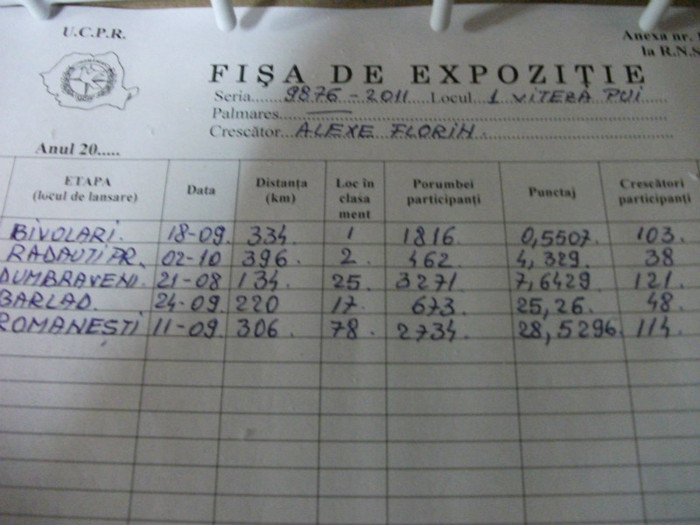 U.C.P.R.
Anexa nr. 1
la R.N.S
FIŞA DE EXPOZIŢIE
Seria......9876-2011...Locul..1 VITEZA PUI
Palmares
Crescător...ALEXE FLORIN.
Anul 20.....
ETAPA (locul de lansare) Data Distanţa (km) Loc în clasa ment Porumbei participanţi Punctaj Crescători participanţi
BIVOLARI. 18-09. 334. 1 1816. 0,5507. 103.
RADAUTI PR. 02-10 396. 2. 462. 4,329. 38
DUMBRAVENI. 21-08 134. 25. 3271. 7,6429 121.
BARLAD. 24-09 220 17. 673. 25,26. 48.
ROMANEŞTI 11-09. 306. 78. 2734. 28,5296. 114.